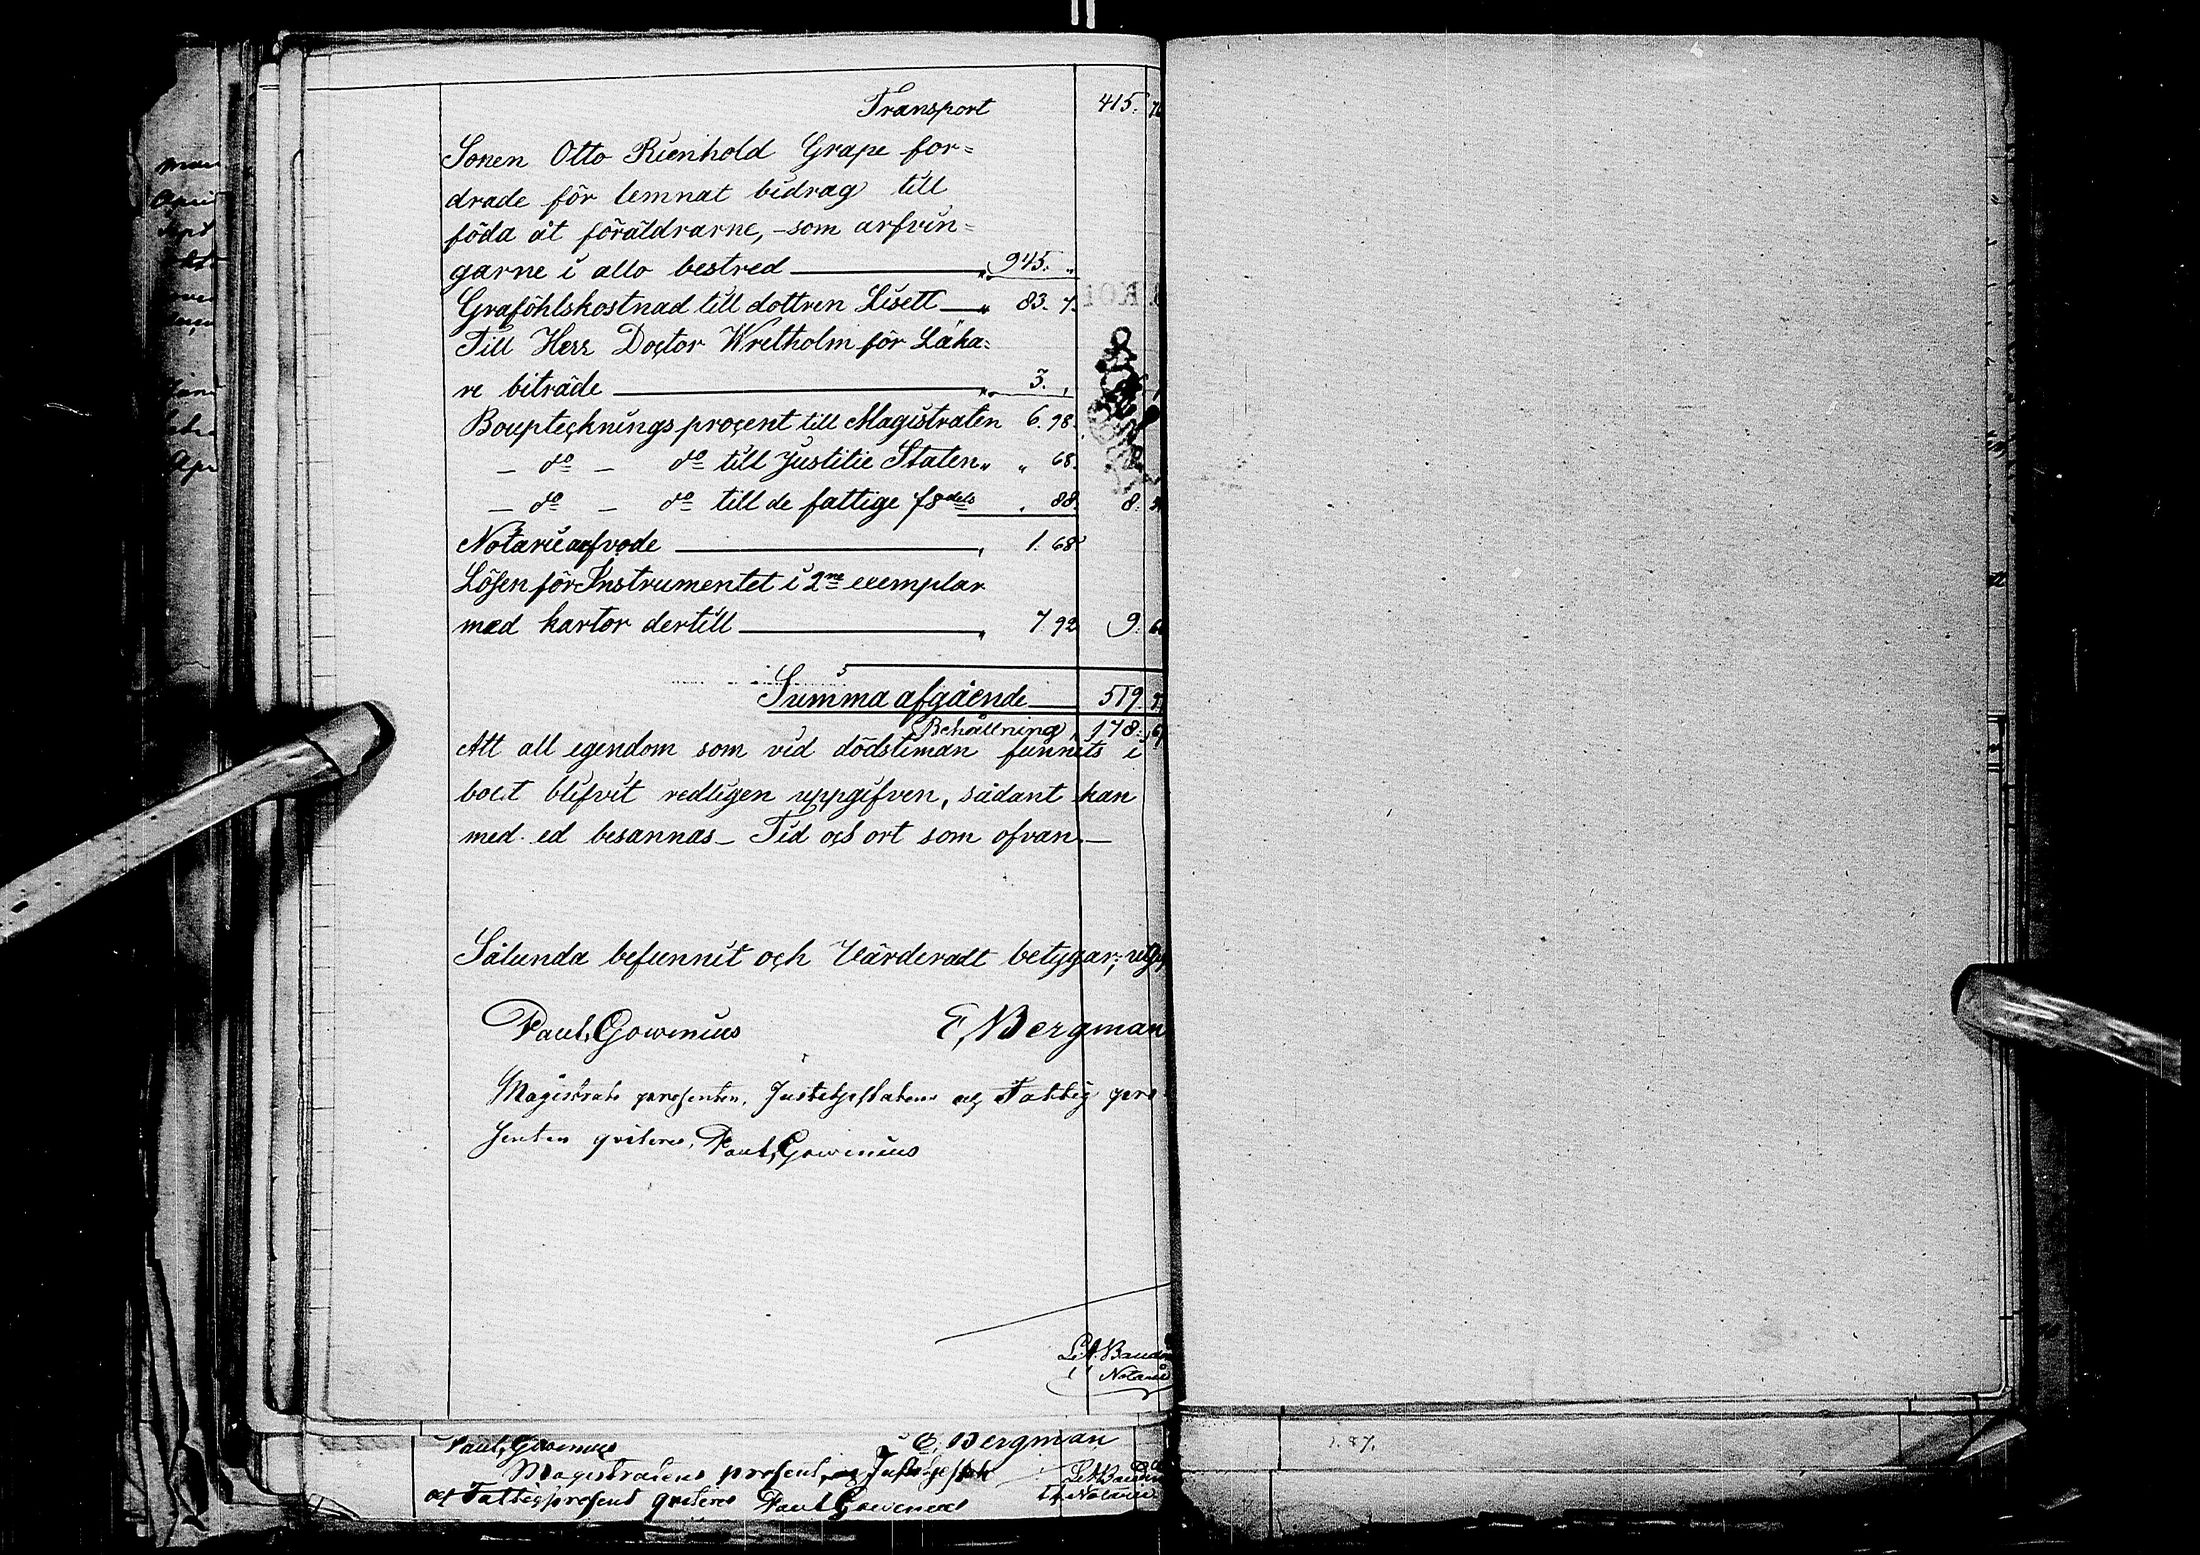 Transport 415.
Sonen Otto Rienhold Grape for=
drade för lemnat bidrag till
föda åt föräldrarne, - som arfvin=
garne i allo bestred " 945. "
Graföhlskostnad till dottren Lisett " 83. 7.
Till Herr Doctor Wretholm för Läka=
re biträde " 3. "
Bouptecknings procent till Magistraten 6. 98.
— do — do till Justitie Staten " " 68.
— do — do till de fattige 88. 8.
Notarie arfvode " 1. 68
Lösen för Instrumentet i 2ne exemplar
med kartor dertill " 7. 92 9.
Summa afgående 519.
Behållning, 178.
Att all egendom som vid dödstiman funnits i
boet blifvit redligen uppgifven, sådant kan
med ed besannas — Tid och ort som ofvan. —
Sålunda befunnit och Värderadt betygar;
Paul Gowenius E. Bergman
Magistrats procenten, Justitiestatens og Fattig pro
senten qviteras, Paul Gowenius
Notarie
Paul Gowenius E. Bergman
Magistratens prosent, og
og Fattigprosent qviteras Paul Gowenius
Notarie